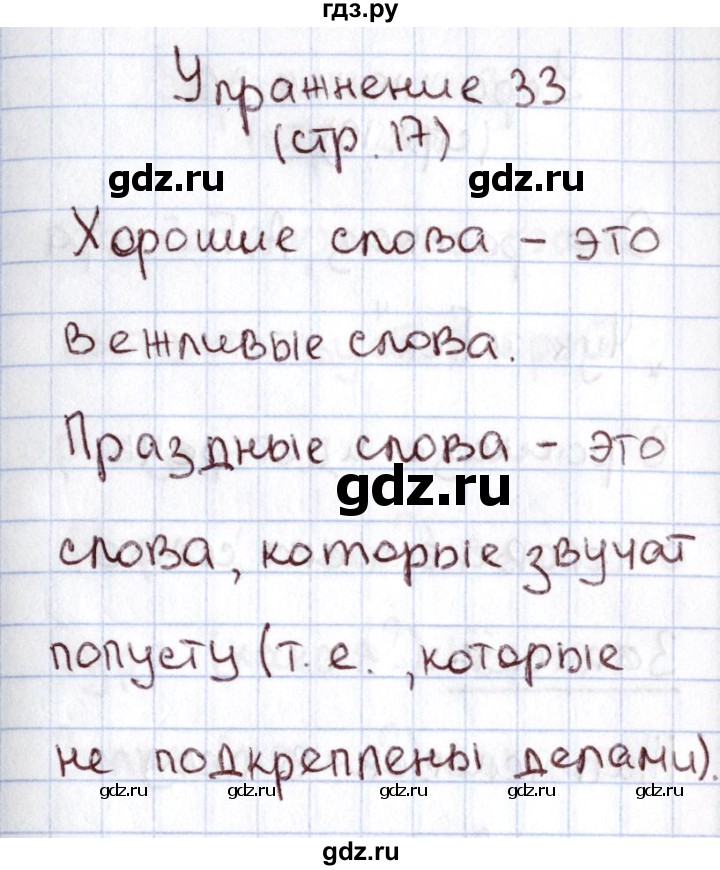 гдз.ру
Упражнение 33
(стр. 17)
gdz.ru gdz.ru
Хорошие слова – это
вежливые слова.
Праздные слова – это
gdz.ru
слова, которые звучат
попусту (т.е. ,которые
не подкреплены делами).
gdz.ru gdz.ru gdz.ru gdz.ru
gdz.ru